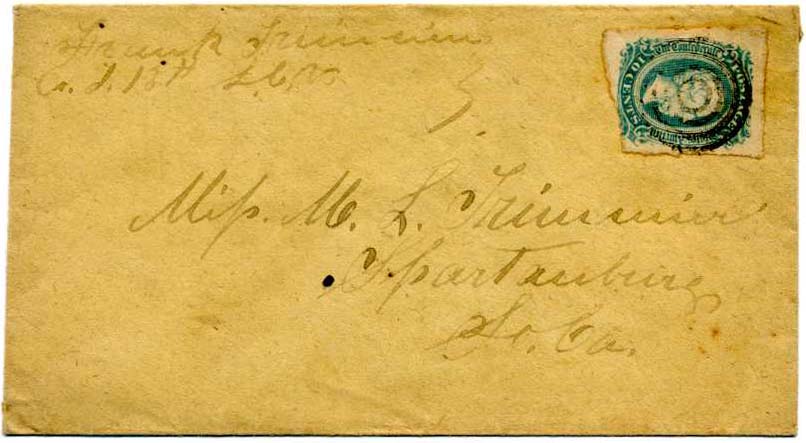 Frank Trimmier
Co. I. 13th S.C.V.
The Confederate
POSTAGE
TEN CENTS
Miss. M. L. Trimmier
Spartanburg
So. Ca.